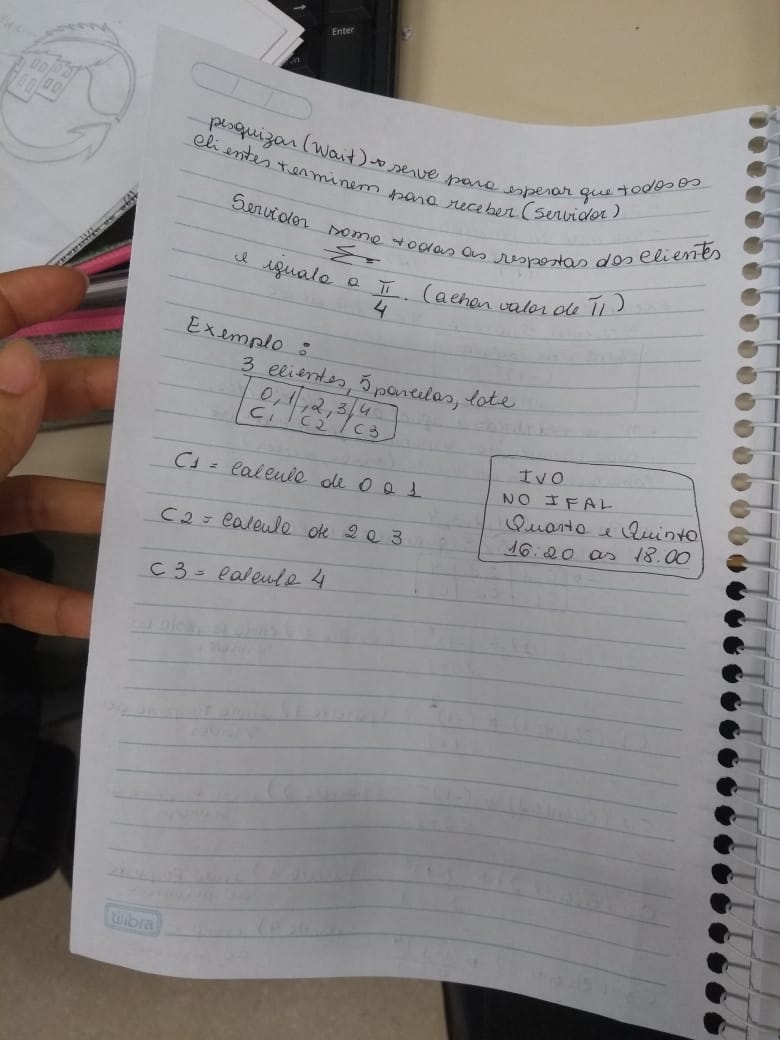 Enter
pesquizar (Wait) → serve para esperar que todos os
clientes terminem para receber (servidor)
Servidor soma todas as respostas dos clientes
Σ =
e iguala a π/4. (achar valor de π)
Exemplo:
3 clientes, 5 parcelas, lote
0, 1, 2, 3, 4
C1 C2 C3
C1 = calcule de 0 a 1
C2 = calcule de 2 a 3
C3 = calcule 4
IVO
NO IFAL
Quarta e Quinta
16:20 as 18:00
tilibra